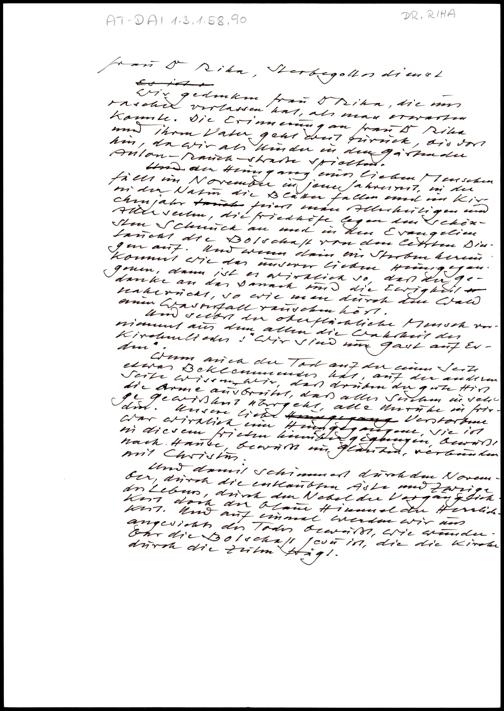 AT-DAI 1.3.1.58.90
DR. RIHA
Frau Dr Riha, Sterbegottesdienst
Wir gedenken Frau Dr Riha, die uns
rascher verlassen hat, als man erwarten
konnte. Die Erinnerung an Frau Dr Riha
und ihren Vater geht weit zurück, bis dort
hin, da wir als Kinder in den Gärten der
Anton-Rauch-Straße spielten.
Und der Heimgang eines lieben Menschen
fällt im November in jene Jahreszeit, in der
in der Natur die Blätter fallen und im Kir-
chenjahr feiert man Allerheiligen und
Allerseelen, die Friedhöfe legen den schön-
sten Schmuck an und in den Evangelien
taucht die Botschaft von den letzten Din-
gen auf. Und wenn dann ein Sterben herein
kommt wie das unserer lieben Heimgegan-
genen, dann ist es wirklich so, dass der Ge-
danke an das Danach und die Ewigkeit
näherrückt, so wie man durch den Wald
einen Wasserfall rauschen hört.
Und selbst der oberflächliche Mensch ver-
nimmt aus dem allen die Wahrheit des
Kirchenliedes: "Wir sind nur Gast auf Er-
den".
Wenn auch der Tod auf der einen Seite
etwas Beklemmendes hat, auf der anderen
Seite wissen wir, dass drüben der gute Hirt
die Arme ausbreitet, dass alles Suchen in
ge Gewißheit übergeht, alle Unruhe in Frie-
den. Unsere liebe Heimgegang Verstorbene
war wirklich eine Heimgegangene, sie ist
in diesem Frieden hinübergegangen, bewußt
nach Hause, bewußt im Glauben, verbunden
mit Christus.
Und damit schimmert durch den Novem-
ber, durch die entlaubten Äste und Zweige
des Lebens, durch den Nebel der Vergänglich-
keit doch der blaue Himmel der Herrlich-
keit. Und auf einmal werden wir uns
angesichts des Todes bewußt, wie wunder-
bar die Botschaft Jesu ist, die die Kirche
durch die Zeiten trägt.